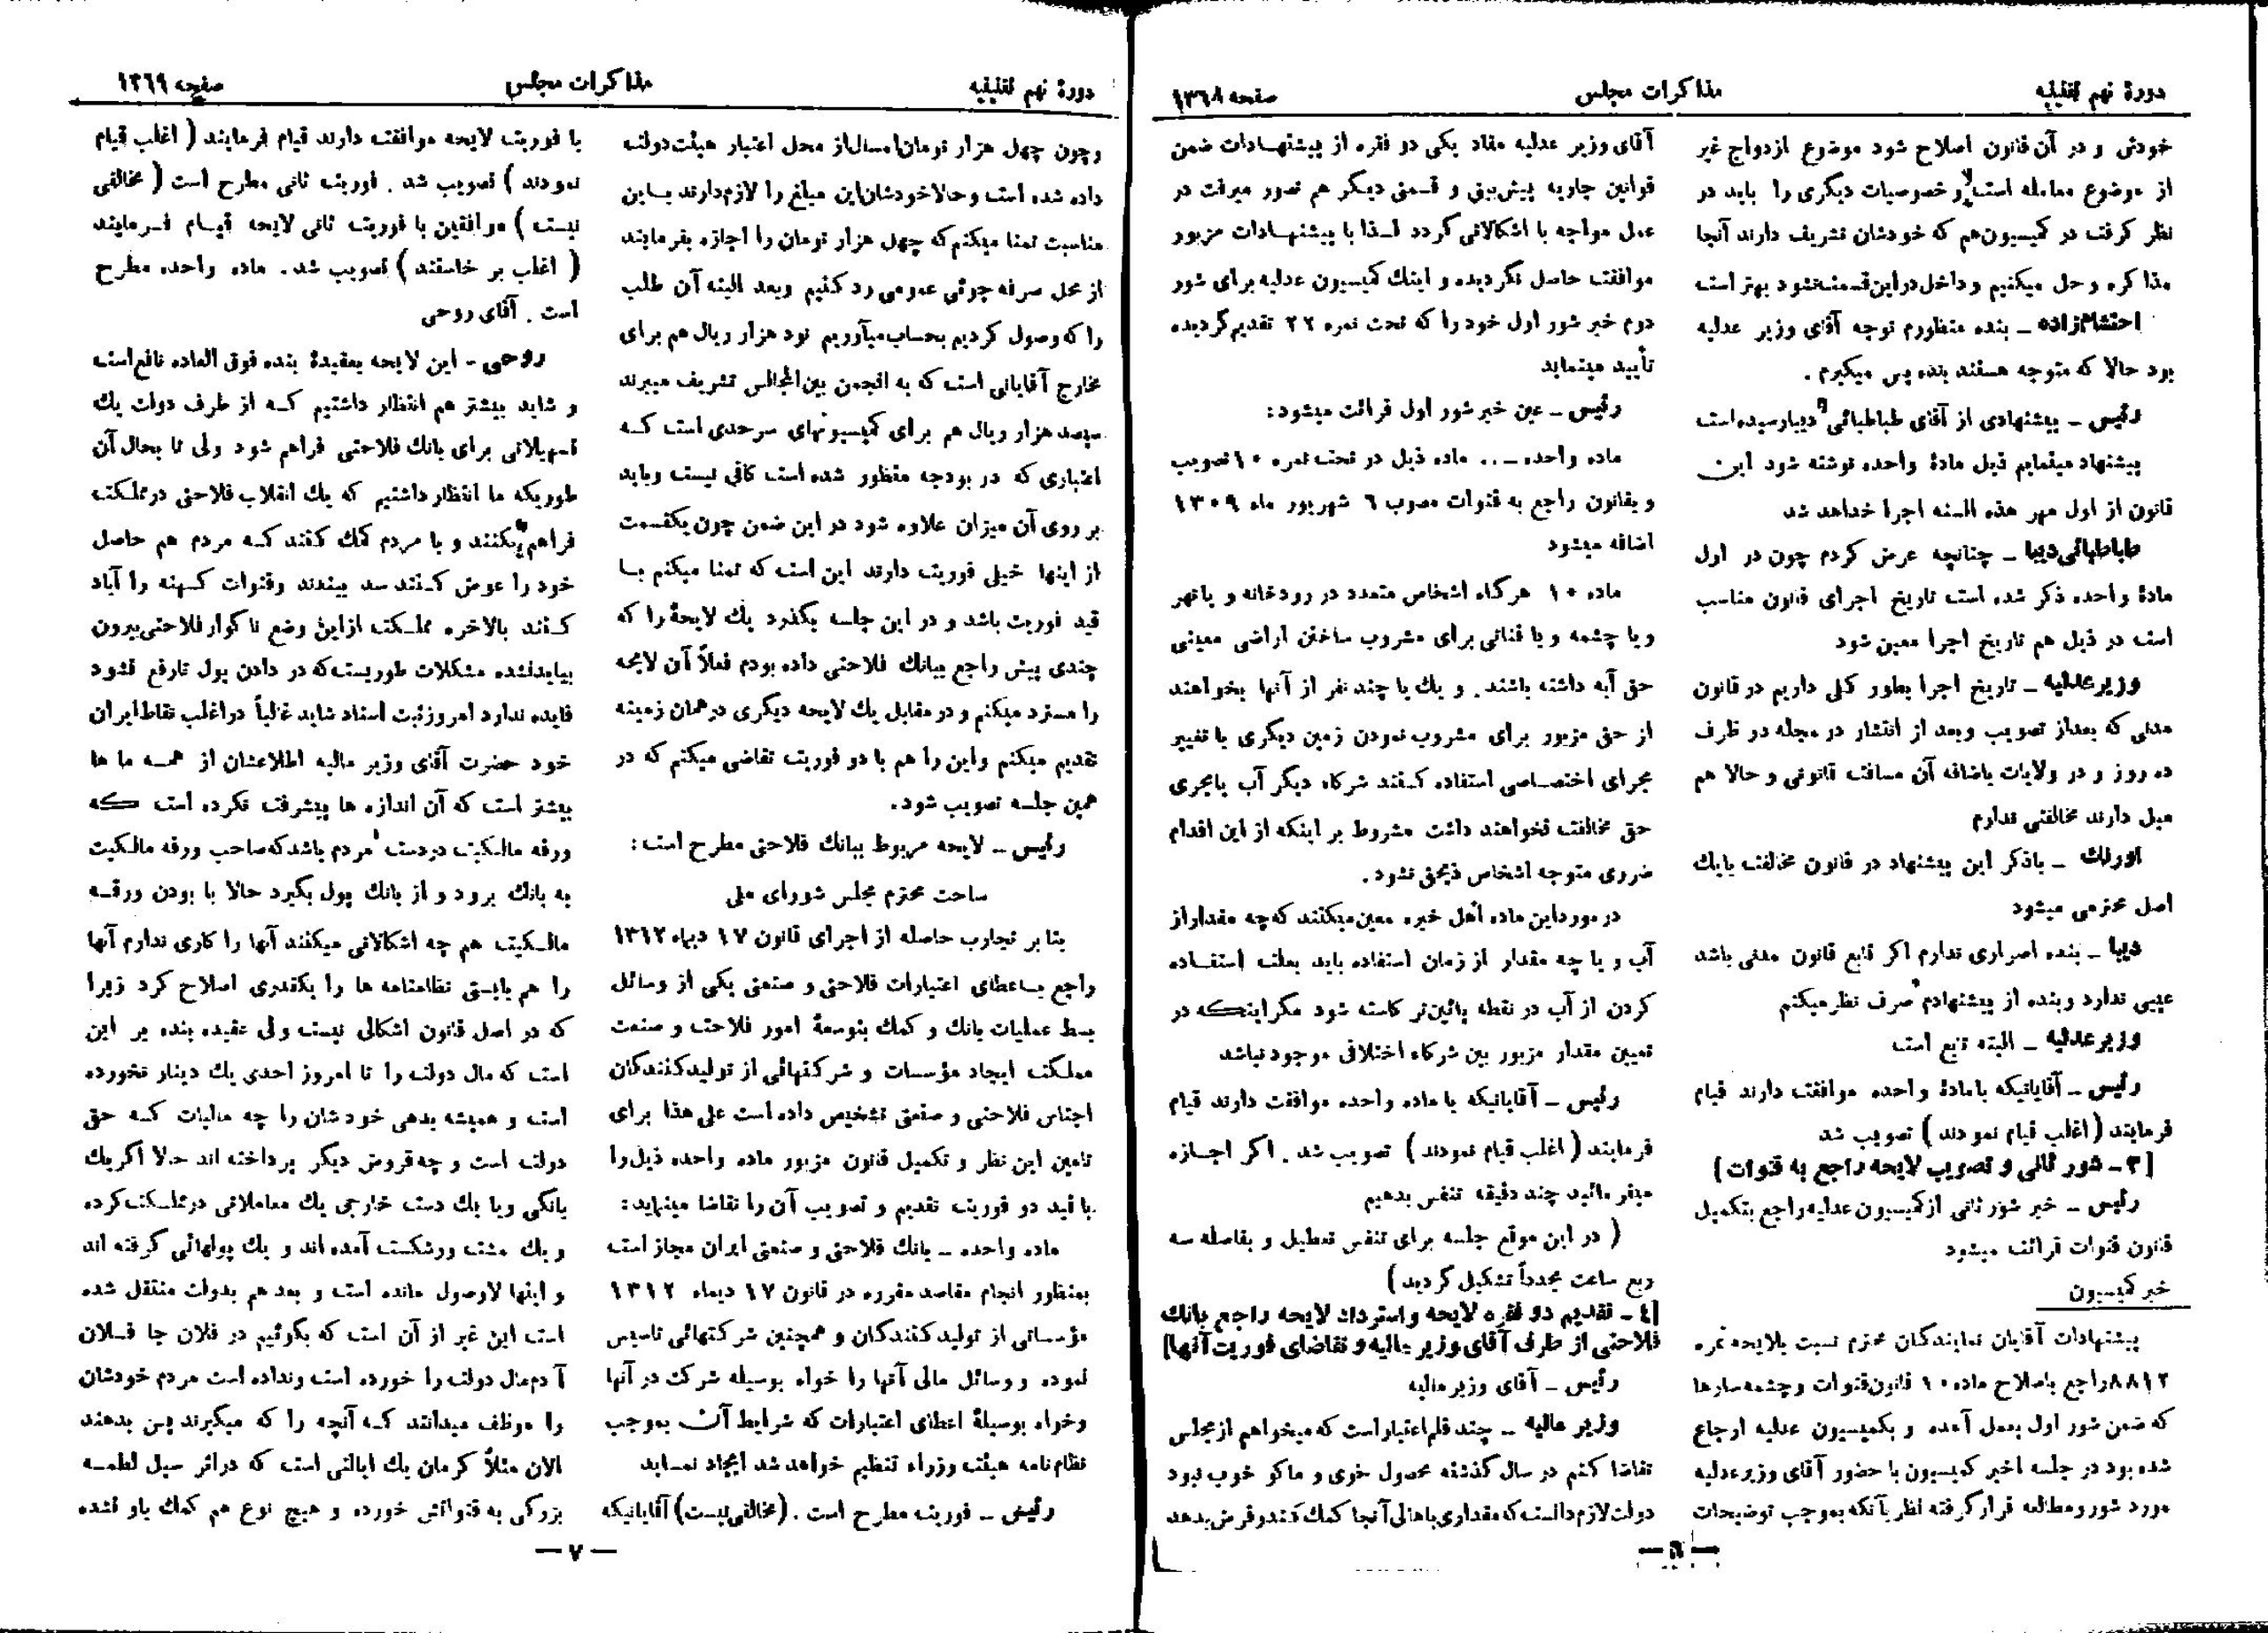 دورهٔ نهم تقنینیه
مذاکرات مجلس
صفحه ۱۳۶۸
خودش و در آن قانون اصلاح شود موضوع ازدواج غیر
از موضوع معامله است و خصوصیات دیگری را باید در
نظر گرفت در کمیسیون هم که خودشان تشریف دارند آنجا
مذاکره و حل میکنیم و داخل در این قسمت نشود بهتر است
احتشام‌زاده ـ بنده منظورم توجه آقای وزیر عدلیه
بود حالا که متوجه هستند بنده پس میگیرم .
رئیس ـ پیشنهادی از آقای طباطبائی دیبا رسیده است
پیشنهاد مینمایم ذیل مادهٔ واحده نوشته شود این
قانون از اول مهر هذه السنه اجرا خداهد شد
طباطبائی دیبا ـ چنانچه عرض کردم چون در اول
مادهٔ واحده ذکر شده است تاریخ اجرای قانون مناسب
است در ذیل هم تاریخ اجرا معین شود
وزیر عدلیه ـ تاریخ اجرا بطور کلی داریم در قانون
مدنی که بعد از تصویب و بعد از انتشار در مجله در ظرف
ده روز و در ولایات باضافه آن مسافت قانونی و حالا هم
میل دارند مخالفتی ندارم
اورنك ـ باذکر این پیشنهاد در قانون مخالفت بایك
اصل محرمی میشود
دیبا ـ بنده اصراری ندارم اگر تابع قانون مدنی باشد
عیبی ندارد و بنده از پیشنهادم صرف نظر میکنم
وزیر عدلیه ـ البته تابع است
رئیس ـ آقایانیکه بامادهٔ واحده موافقت دارند قیام
فرمایند ( اغلب قیام نمودند ) تصویب شد
[ ۳ ـ شور ثانی و تصویب لایحه راجع به قنوات ]
رئیس ـ خبر شور ثانی از کمیسیون عدلیه راجع بتکمیل
قانون قنوات قرائت میشود
خبر کمیسیون
پیشنهادات آقایان نمایندگان محترم نسبت بلایحه نمره
۸۸۱۲ راجع باصلاح ماده ۱۰ قانون قنوات و چشمه سارها
که ضمن شور اول بعمل آمده و بکمیسیون عدلیه ارجاع
شده بود در جلسه اخیر کمیسیون با حضور آقای وزیر عدلیه
مورد شور و مطالعه قرار گرفته نظر بآنکه بموجب توضیحات
آقای وزیر عدلیه مفاد یکی دو فقره از پیشنهادات ضمن
قوانین جاریه پیش‌بینی و قسمتی دیگر هم تصور میرفت در
عمل مواجه با اشکالاتی گردد لذا با پیشنهادات مزبور
موافقت حاصل نگردیده و اینك کمیسیون عدلیه برای شور
دوم خبر شور اول خود را که تحت نمره ۲۲ تقدیم گردیده
تأیید مینماید
رئیس ـ عین خبر شور اول قرائت میشود :
ماده واحده ـ .. ماده ذیل در تحت نمره ۱۰ تصویب
و بقانون راجع به قنوات مصوب ۶ شهریور ماه ۱۳۰۹
اضافه میشود
ماده ۱۰ هرگاه اشخاص متعدد در رودخانه و یا نهر
و یا چشمه و یا قناتی برای مشروب ساختن اراضی معینی
حق آبه داشته باشند . و یك یا چند نفر از آنها بخواهند
از حق مزبور برای مشروب نمودن زمین دیگری با تغییر
مجرای اختصاصی استفاده کنند شرکاء دیگر آب یا مجری
حق مخالفت نخواهند داشت مشروط بر اینکه از این اقدام
ضرری متوجه اشخاص ذیحق نشود .
در مورد این ماده اهل خبره معین میکنند که چه مقدار از
آب و یا چه مقدار از زمان استفاده باید بعلت استفاده
کردن از آب در نقطه پائین‌تر کاسته شود مگر اینکه در
تعیین مقدار مزبور بین شرکاء اختلافی موجود نباشد
رئیس ـ آقایانیکه با ماده واحده موافقت دارند قیام
فرمایند ( اغلب قیام نمودند ) تصویب شد . اگر اجازه
میفرمائید چند دقیقه تنفس بدهیم
( در این موقع جلسه برای تنفس تعطیل و بفاصله سه
ربع ساعت مجدداً تشکیل گردید )
[ ٤ ـ تقدیم دو فقره لایحه و استرداد لایحه راجع ببانك
فلاحتی از طرف آقای وزیر مالیه و تقاضای فوریت آنها ]
رئیس ـ آقای وزیر مالیه
وزیر مالیه ـ چند قلم اعتبار است که میخواهم از مجلس
تقاضا کنم در سال گذشته محصول خوی و ماکو خوب نبود
دولت لازم دانست که مقداری باهالی آنجا کمك کند و قرض بدهد
— ٦ —
دورهٔ نهم تقنینیه
مذاکرات مجلس
صفحه ۱۳۶۹
و چون چهل هزار تومان امسال از محل اعتبار هیئت دولت
داده شده است و حالا خودشان این مبلغ را لازم دارند باین
مناسبت تمنا میکنم که چهل هزار تومان را اجازه بفرمایند
از محل صرفه جوئی عمومی رد کنیم و بعد البته آن طلب
را که وصول کردیم بحساب میآوریم نود هزار ریال هم برای
مخارج آقایانی است که به انجمن بین المجالس تشریف میبرند
سیصد هزار ریال هم برای کمیسیونهای سرحدی است که
اعتباری که در بودجه منظور شده است کافی نیست و باید
بر روی آن میزان علاوه شود در این ضمن چون یکقسمت
از اینها خیلی فوریت دارند این است که تمنا میکنم با
قید فوریت باشد و در این جلسه بگذرد یك لایحهٔ را که
چندی پیش راجع ببانك فلاحتی داده بودم فعلاً آن لایحه
را مسترد میکنم و در مقابل یك لایحه دیگری در همان زمینه
تقدیم میکنم و این را هم با دو فوریت تقاضی میکنم که در
همین جلسه تصویب شود .
رئیس ـ لایحه مربوط ببانك فلاحتی مطرح است :
ساحت محترم مجلس شورای ملی
بنا بر تجارب حاصله از اجرای قانون ۱۷ دیماه ۱۳۱۲
راجع باعطای اعتبارات فلاحتی و صنعتی یکی از وسائل
بسط عملیات بانك و کمك بتوسعهٔ امور فلاحت و صنعت
مملکت ایجاد مؤسسات و شرکتهائی از تولید کنندگان
اجناس فلاحتی و صنعتی تشخیص داده است علی هذا برای
تامین این نظر و تکمیل قانون مزبور ماده واحده ذیل را
با قید دو فوریت تقدیم و تصویب آن را تقاضا مینماید :
ماده واحده ـ بانك فلاحتی و صنعتی ایران مجاز است
بمنظور انجام مقاصد مقرره در قانون ۱۷ دیماه ۱۳۱۲
مؤسساتی از تولید کنندگان و همچنین شرکتهائی تاسیس
نموده و وسائل مالی آنها را خواه بوسیله شرکت در آنها
و خواه بوسیلهٔ اعطای اعتبارات که شرایط آن بموجب
نظام نامه هیئت وزراء تنظیم خواهد شد ایجاد نماید
رئیس ـ فوریت مطرح است . (مخالفی نیست) آقایانیکه
با فوریت لایحه موافقت دارند قیام فرمایند ( اغلب قیام
نمودند ) تصویب شد . فوریت ثانی مطرح است ( مخالفی
نیست ) موافقین با فوریت ثانی لایحه قیام فرمایند
( اغلب بر خاستند ) تصویب شد . ماده واحده مطرح
است . آقای روحی
روحی ـ این لایحه بعقیدهٔ بنده فوق العاده نافع است
و شاید بیشتر هم انتظار داشتیم که از طرف دولت یك
تسهیلاتی برای بانك فلاحتی فراهم شود ولی تا بحال آن
طوریکه ما انتظار داشتیم که یك انقلاب فلاحتی در مملکت
فراهم بکنند و با مردم کمك کنند که مردم هم حاصل
خود را عوض کنند سد ببندند و قنوات کهنه را آباد
کنند بالاخره مملکت از این وضع ناگوار فلاحتی بیرون
بیاید نشده مشکلات طوریست که در دادن پول تا رفع نشود
فایده ندارد امروز ثبت اسناد شاید غالباً در اغلب نقاط ایران
خود حضرت آقای وزیر مالیه اطلاعشان از همه ما ها
بیشتر است که آن اندازه ها پیشرفت نکرده است که
ورقه مالکیت در دست مردم باشد که صاحب ورقه مالکیت
به بانك برود و از بانك پول بگیرد حالا با بودن ورقه
مالکیت هم چه اشکالاتی میکنند آنها را کاری ندارم آنها
را هم بایستی نظامنامه ها را یکقدری اصلاح کرد زیرا
که در اصل قانون اشکالی نیست ولی عقیده بنده بر این
است که مال دولت را تا امروز احدی یك دینار نخورده
است و همیشه بدهی خودشان را چه مالیات که حق
دولت است و چه قروض دیگر پرداخته اند حالا اگر یك
بانکی و یا یك دست خارجی یك معاملاتی در مملکت کرده
و یك مشت ورشکست آمده اند و یك پولهائی گرفته اند
و اینها لاوصول مانده است و بعد هم بدولت منتقل شده
است این غیر از آن است که بگوئیم در فلان جا فلان
آدم مال دولت را خورده است و نداده است مردم خودشان
را موظف میدانند که آنچه را که میگیرند پس بدهند
الان مثلاً کرمان یك ایالتی است که در اثر سیل لطمه
بزرگی به قنواتش خورده و هیچ نوع هم کمك باو نشده
— ۷ —